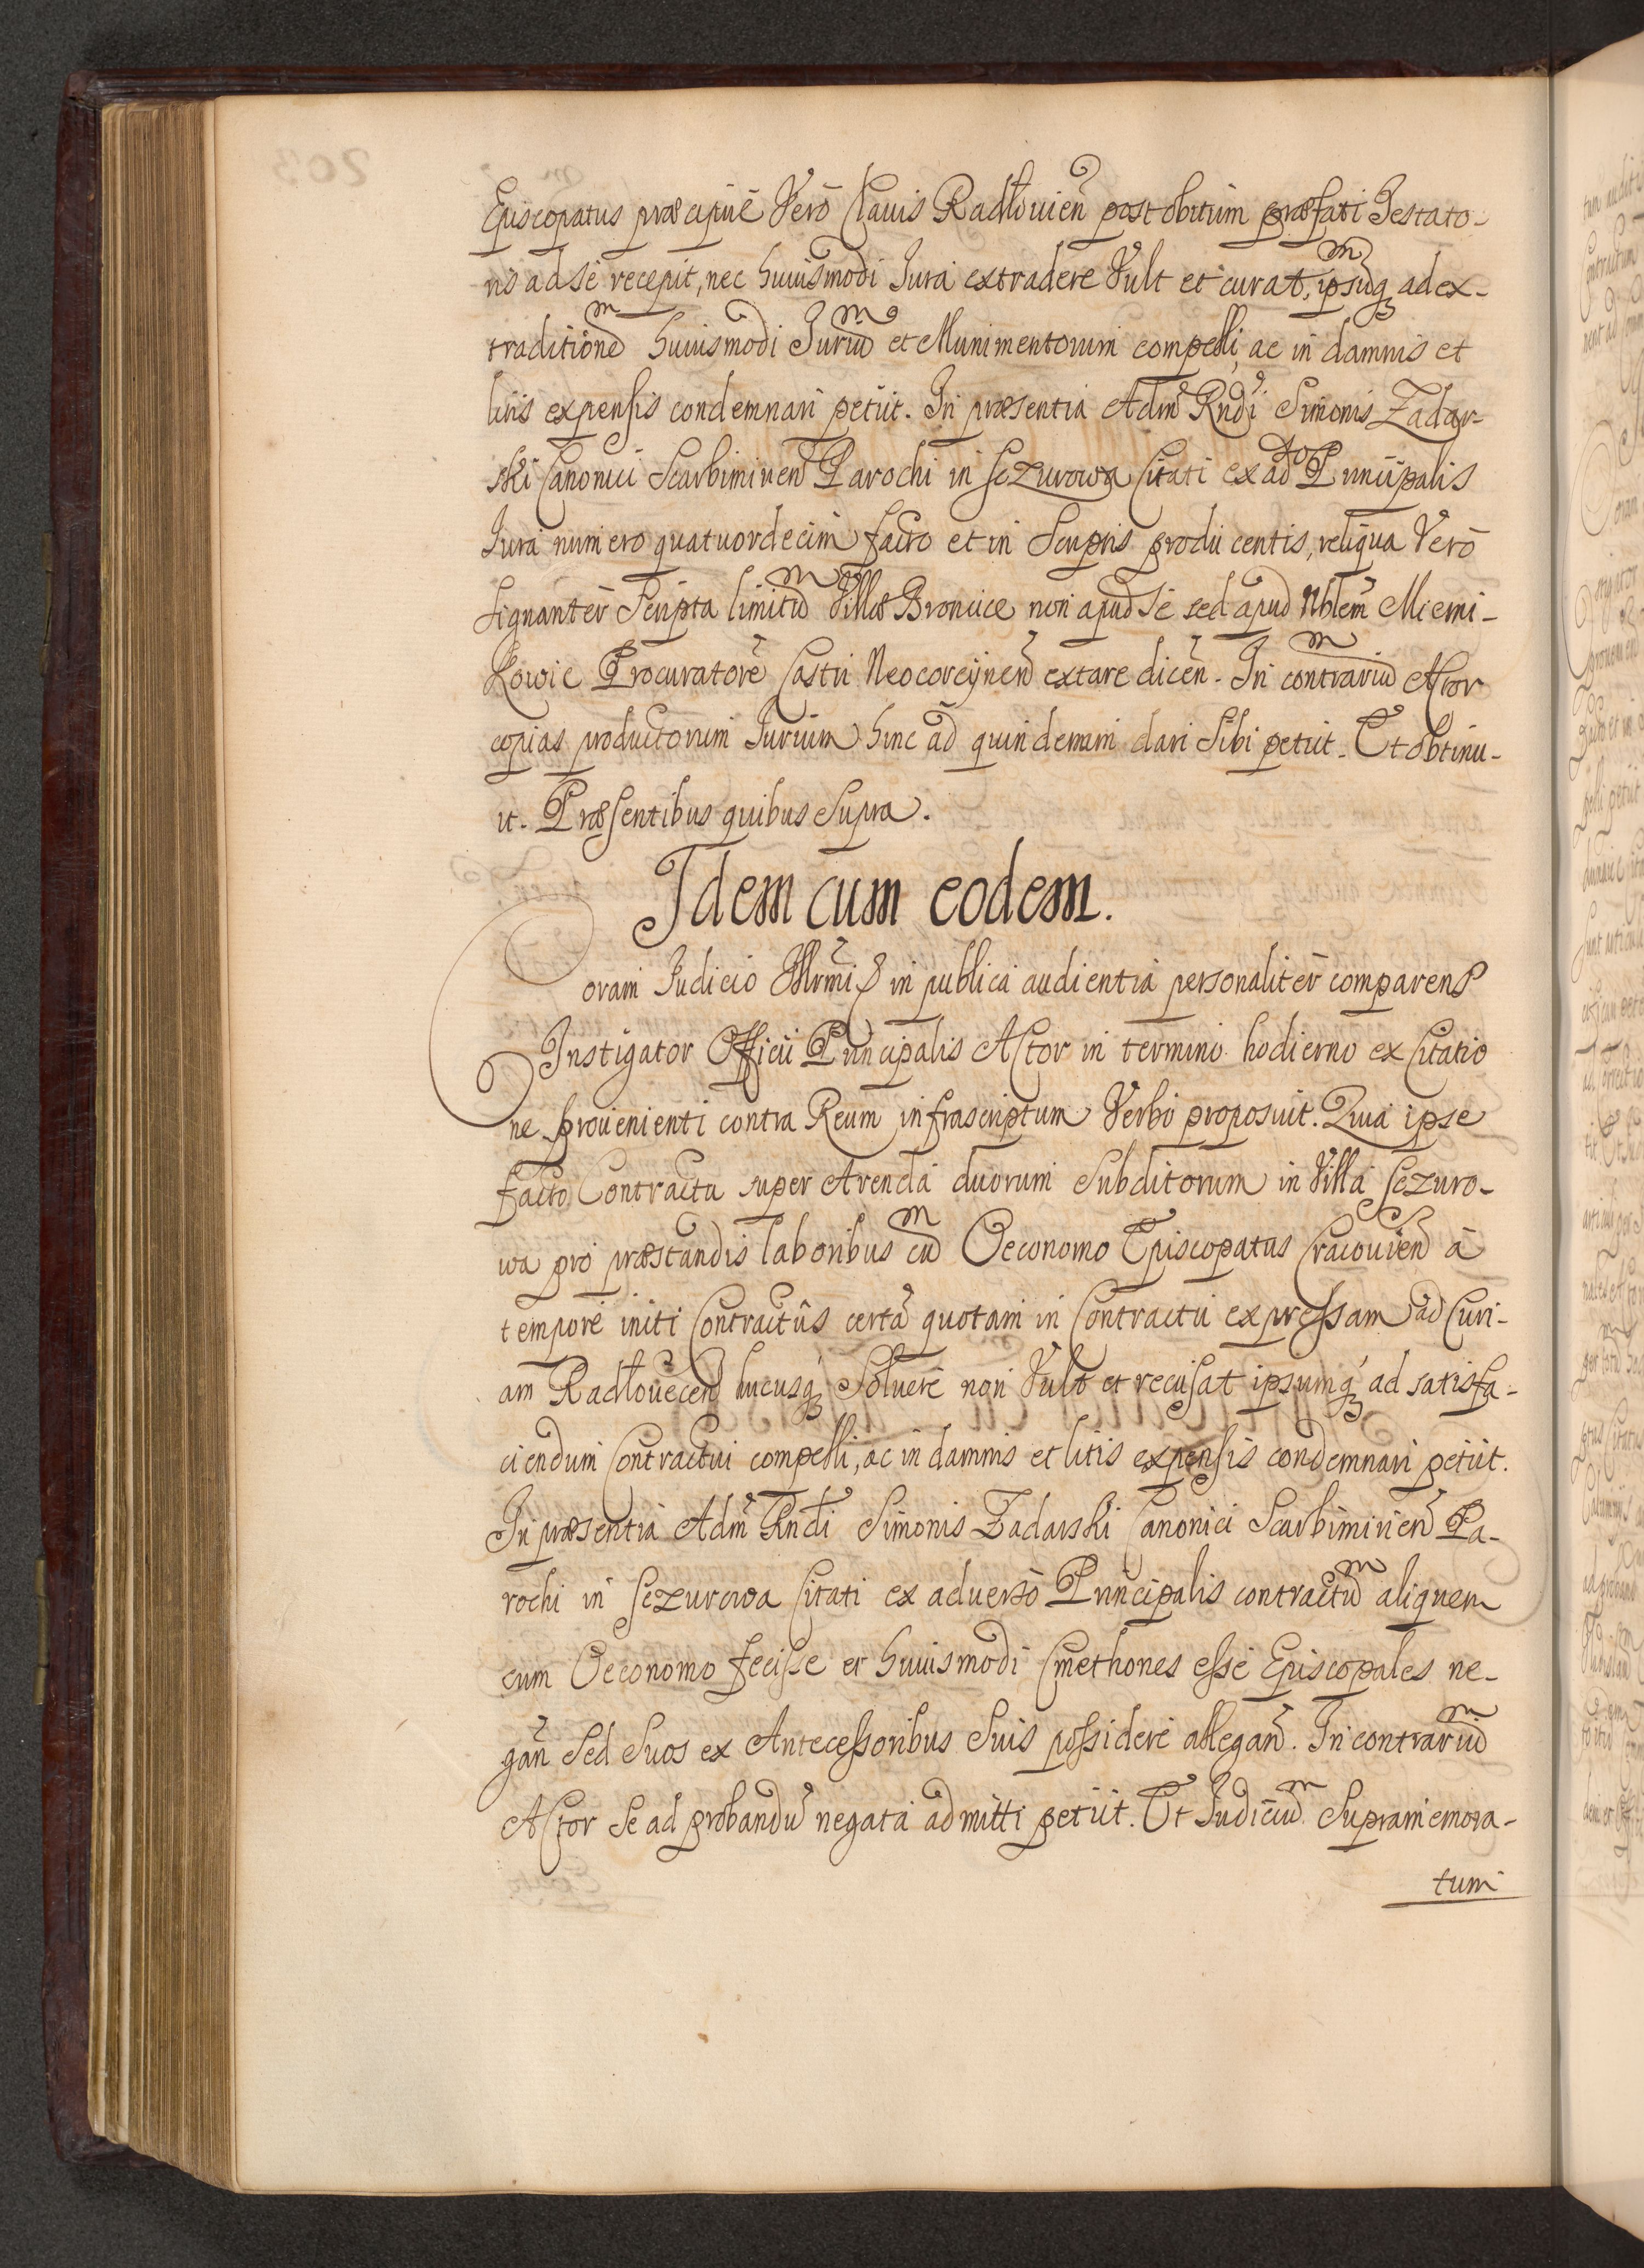 Episcopatus præcipuè Verò Clauis Radłouien̄ post obitum præfati Testato-
ris ad se recepit, nec huiusmodi Iura extradere Vult et curat, ipsūq₃ ad ex-
traditionē huiusmodi Iuriū et Munimentorum compelli, ac in damnis et
litis expensis condemnari petiit. In præsentia Adm̄ Rndi Simonis Zadar-
ski Canonici Scarbimirien̄ Parochi in Sczurowa Citati ex ado Principalis
Iura numero quatuordecim facto et in Scriptis producentis, reliqua Verò
Signantèr Scripta limitū Villæ Bronice non apud se sed apud Nblem̄ Miemi-
Kowic Procuratorē Castri Neocorcijnen̄ extare dicen̄. In contrariū Actor
copias productorum Iurium hinc ad quindenam dari Sibi petiit. Et obtinu-
it. Præsentibus quibus Supra.
Idem cum eodem.
Coram Iudicio Illrmi in publica audientia personalitèr comparens
Instigator Officii Principalis Actor in termino hodierno ex Citatio
ne prouenienti contra Reum infrascriptum Verbo proposuit. Quia ipse
facto Contractu super Arenda duorum Subditorum in Villa Sczuro-
wa pro præstandis laboribus cū Oeconomo Episcopatus Cracouien̄ à
tempore initi Contractûs certā quotam in Contractu expressam ad Curi-
am Radłouecen̄ hucusq₃ Soluere non Vult et recusat ipsumq₃ ad satisfa-
ciendum Contractui compelli, ac in damnis et litis expensis condemnari petiit.
In præsentia Adm̄ Rndi Simonis Zadarski Canonici Scarbimirien̄ Pa-
rochi in Sczurowa Citati ex aduerso Principalis contractū aliquem
cum Oeconomo fecisse et huiusmodi Cmethones esse Episcopales ne-
gan̄ Sed Suos ex Antecessoribus Suis possidere allegan̄. In contrariū
Actor Se ad probandū negata admitti petiit. Et Iudiciū Supramemora-
tum